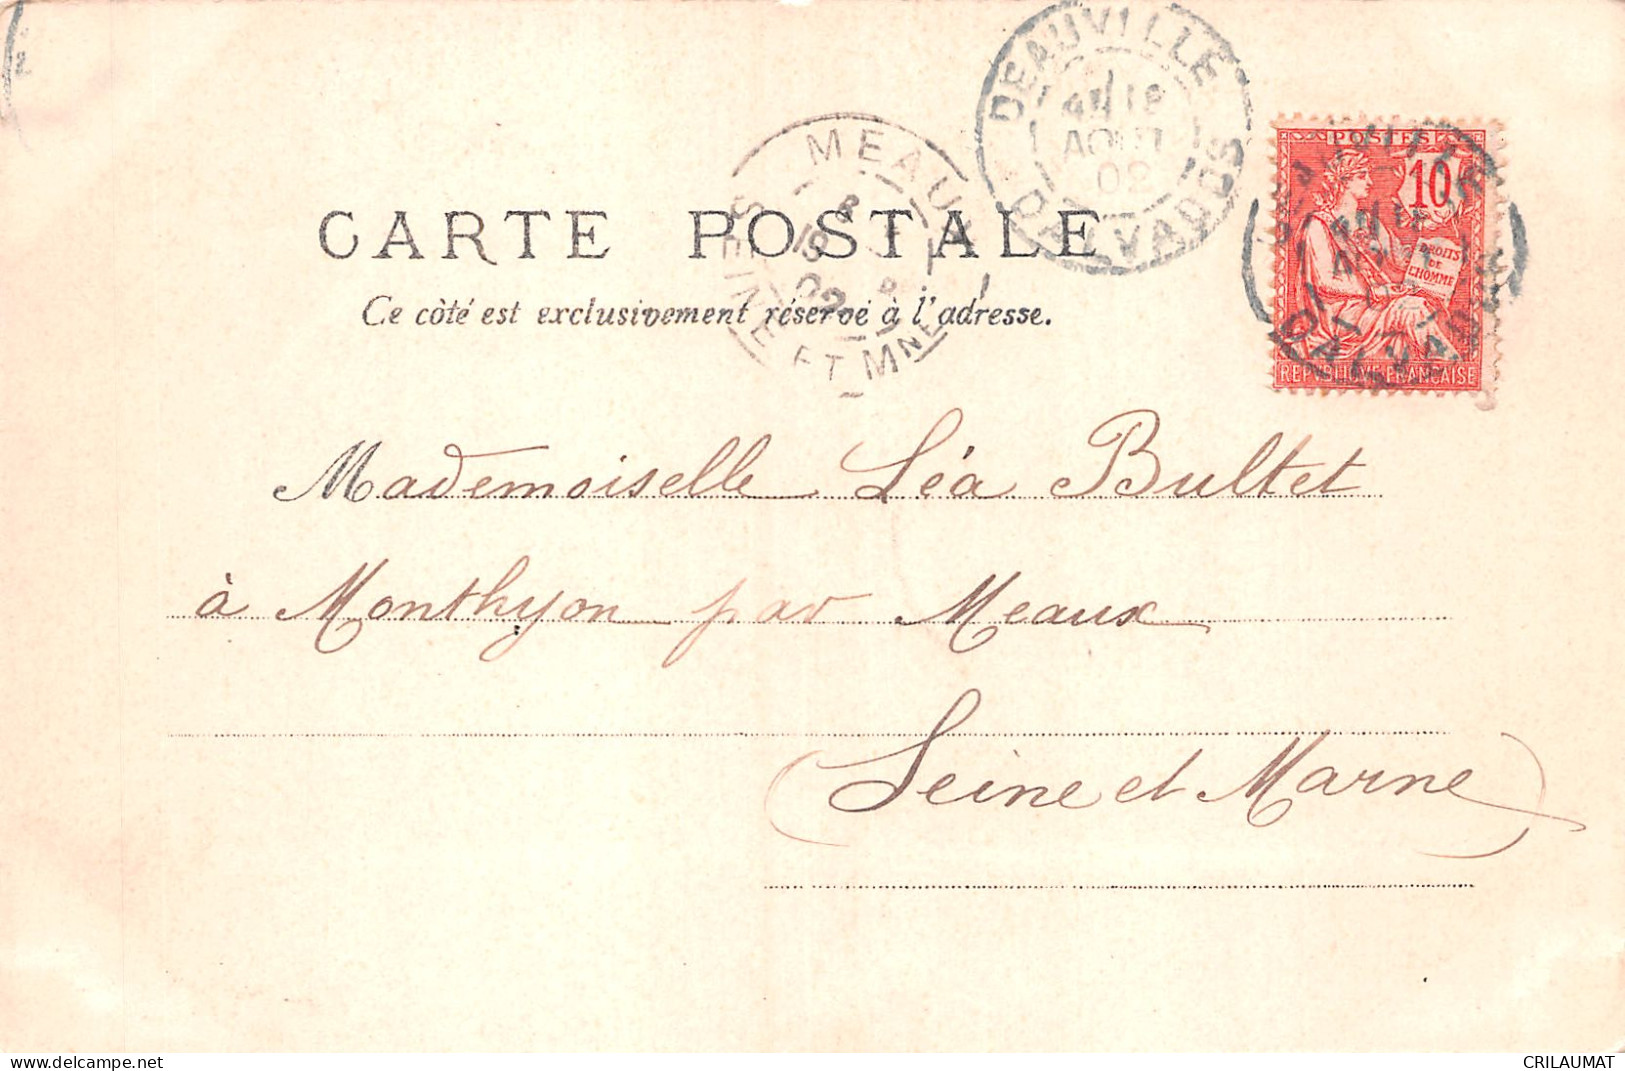 DEAUVILLE
AOUT
02
CALVADOS
MEAUX
8
19
02
SEINE ET MNE
POSTES
10
DROITS
DE
L'HOMME
REPUBLIQUE FRANÇAISE
CARTE POSTALE
Ce côté est exclusivement réservé à l'adresse.
Mademoiselle Léa Bultet
à Monthyon par Meaux
(Seine et Marne)
www.delcampe.net
CRILAUMAT